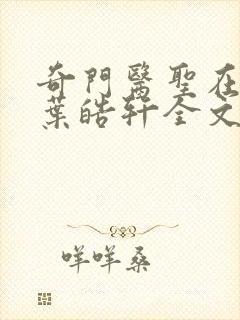 奇門醫聖在
葉皓軒全文
咩咩桑